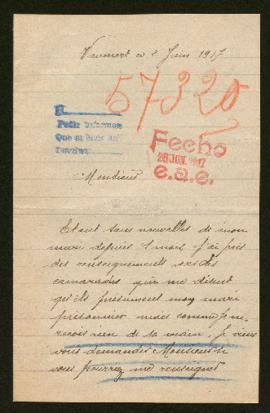 Juin 1917
57320
Pedir informes
Que se
Fecho
28 JUL. 1917
e.a.e.
Monsieur
Etant sans nouvelles de mon
mari depuis 1 mois j'ai pris
des renseignements
camarades qui me disent
qu'ils présument mon mari
prisonnier mais comme je ne
reçois rien de sa main, je viens
vous demander Monsieur si
vous pourrez me renseigner